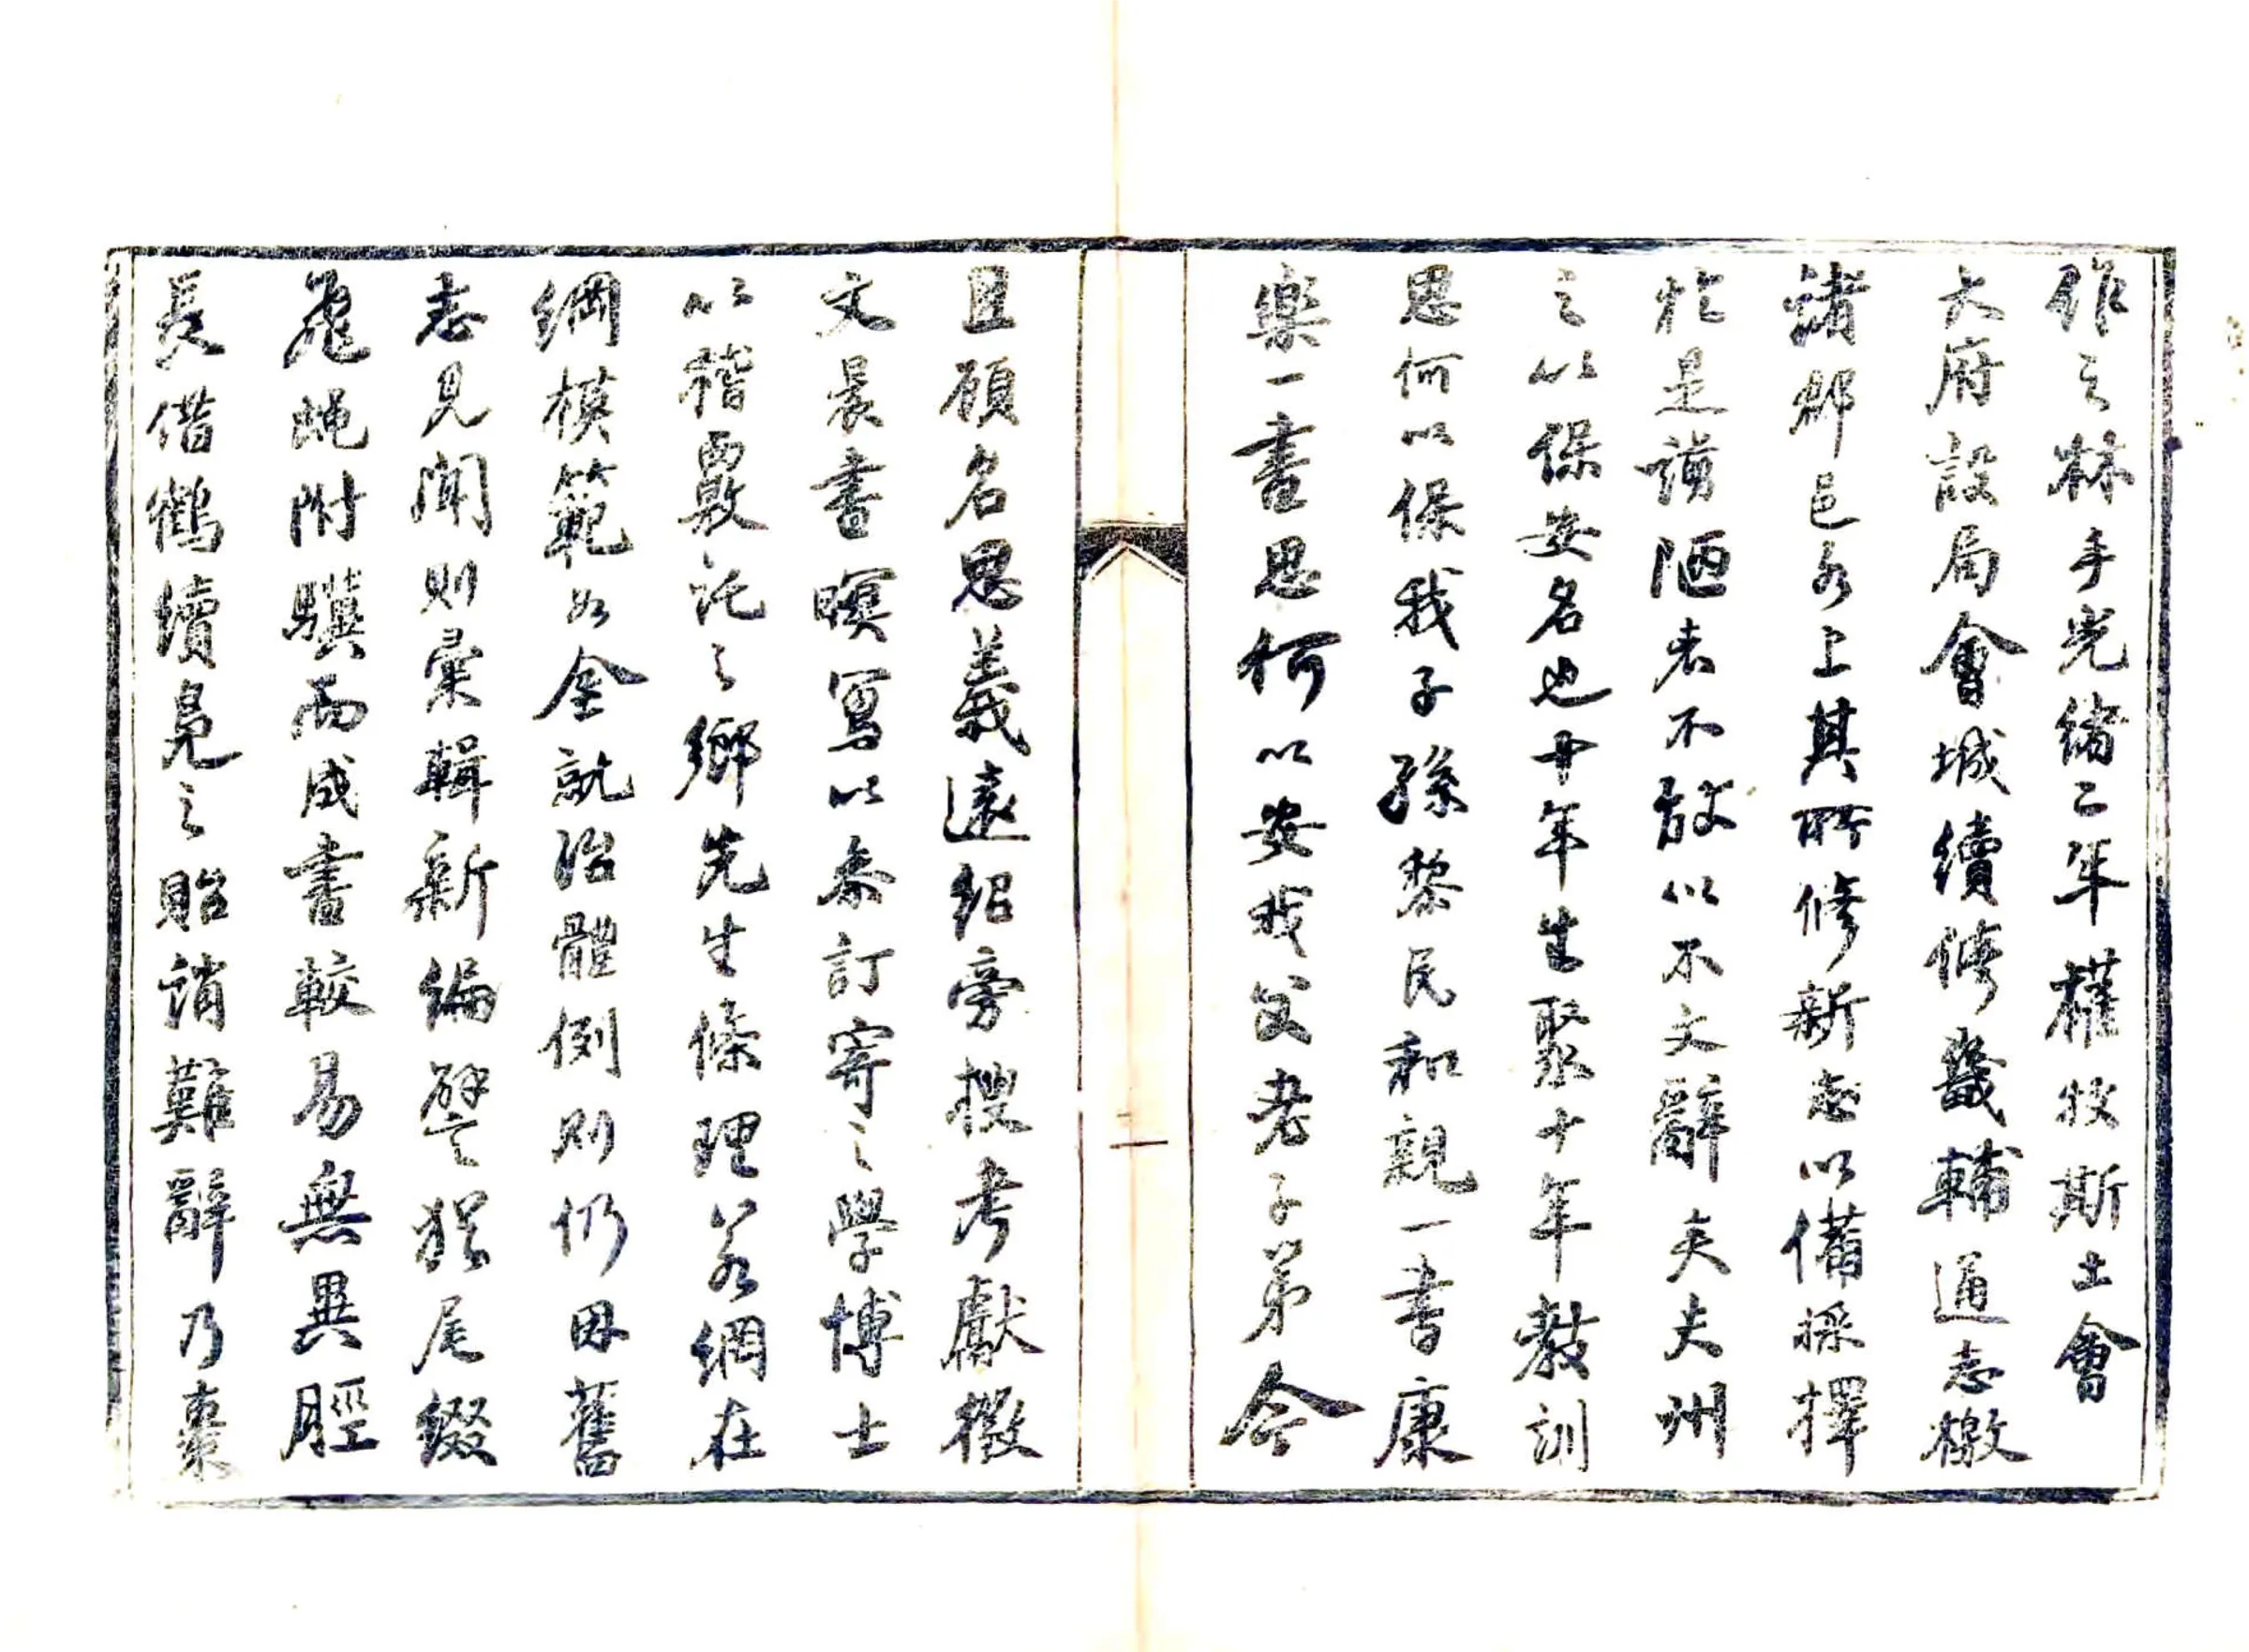 之棘手光緒二年權牧斯土會
大府設局會城續修畿輔通志檄
諸郡邑各上其所修新志以備採擇
於是譾陋者不敢以不文辭矣夫州
之以保安名也十年生聚十年教訓
思何以保我子孫黎民和親一書康
樂一書思何以安我父老子弟今
且顧名思義遠紹旁搜考獻徵
文晨書暝寫以參訂寄之學博士
以稽覈託之鄉先生條理若綱在
綱模範如金就冶體例則仍因舊
志見聞則彙輯新編譬之尾綴
飛蠅附驥而成書較易無異脛
長借鶴續鳧之貽誚難辭乃棗